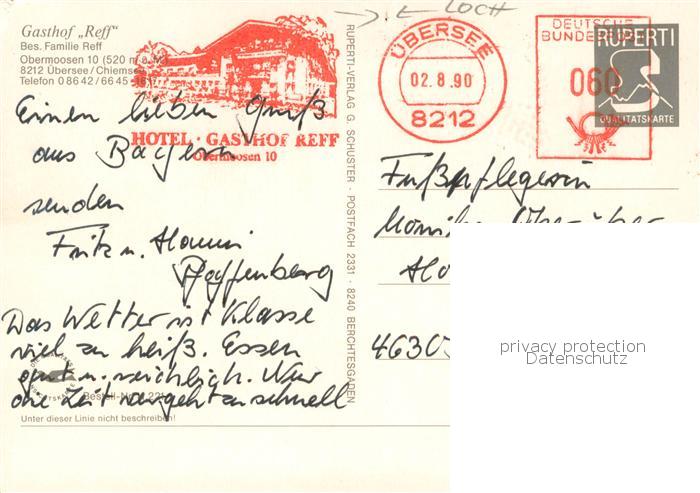 Gasthof „Reff“
Bes. Familie Reff
Obermoosen 10 (520 m a. M.)
8212 Übersee/Chiemsee
Telefon 0 86 42 / 66 45
HOTEL · GASTHOF REFF
Obermoosen 10
Einen lieben Gruß
aus Bayern
senden
Fritz u. Hanni
Pfaffenberg
Das Wetter ist Klasse
viel zu heiß. Essen
gut u. reichlich. Nur
die Zeit vergeht zu schnell
Bestell-Nr.
Unter dieser Linie nicht beschreiben!
RUPERTI-VERLAG G. SCHUSTER - POSTFACH 2331 - 8240 BERCHTESGADEN
← LOCH
ÜBERSEE
02.8.90
8212
DEUTSCHE
BUNDESPOST
060
RUPERTI
QUALITÄTSKARTE
Fußpflegerin
Monika
4630
privacy protection
Datenschutz